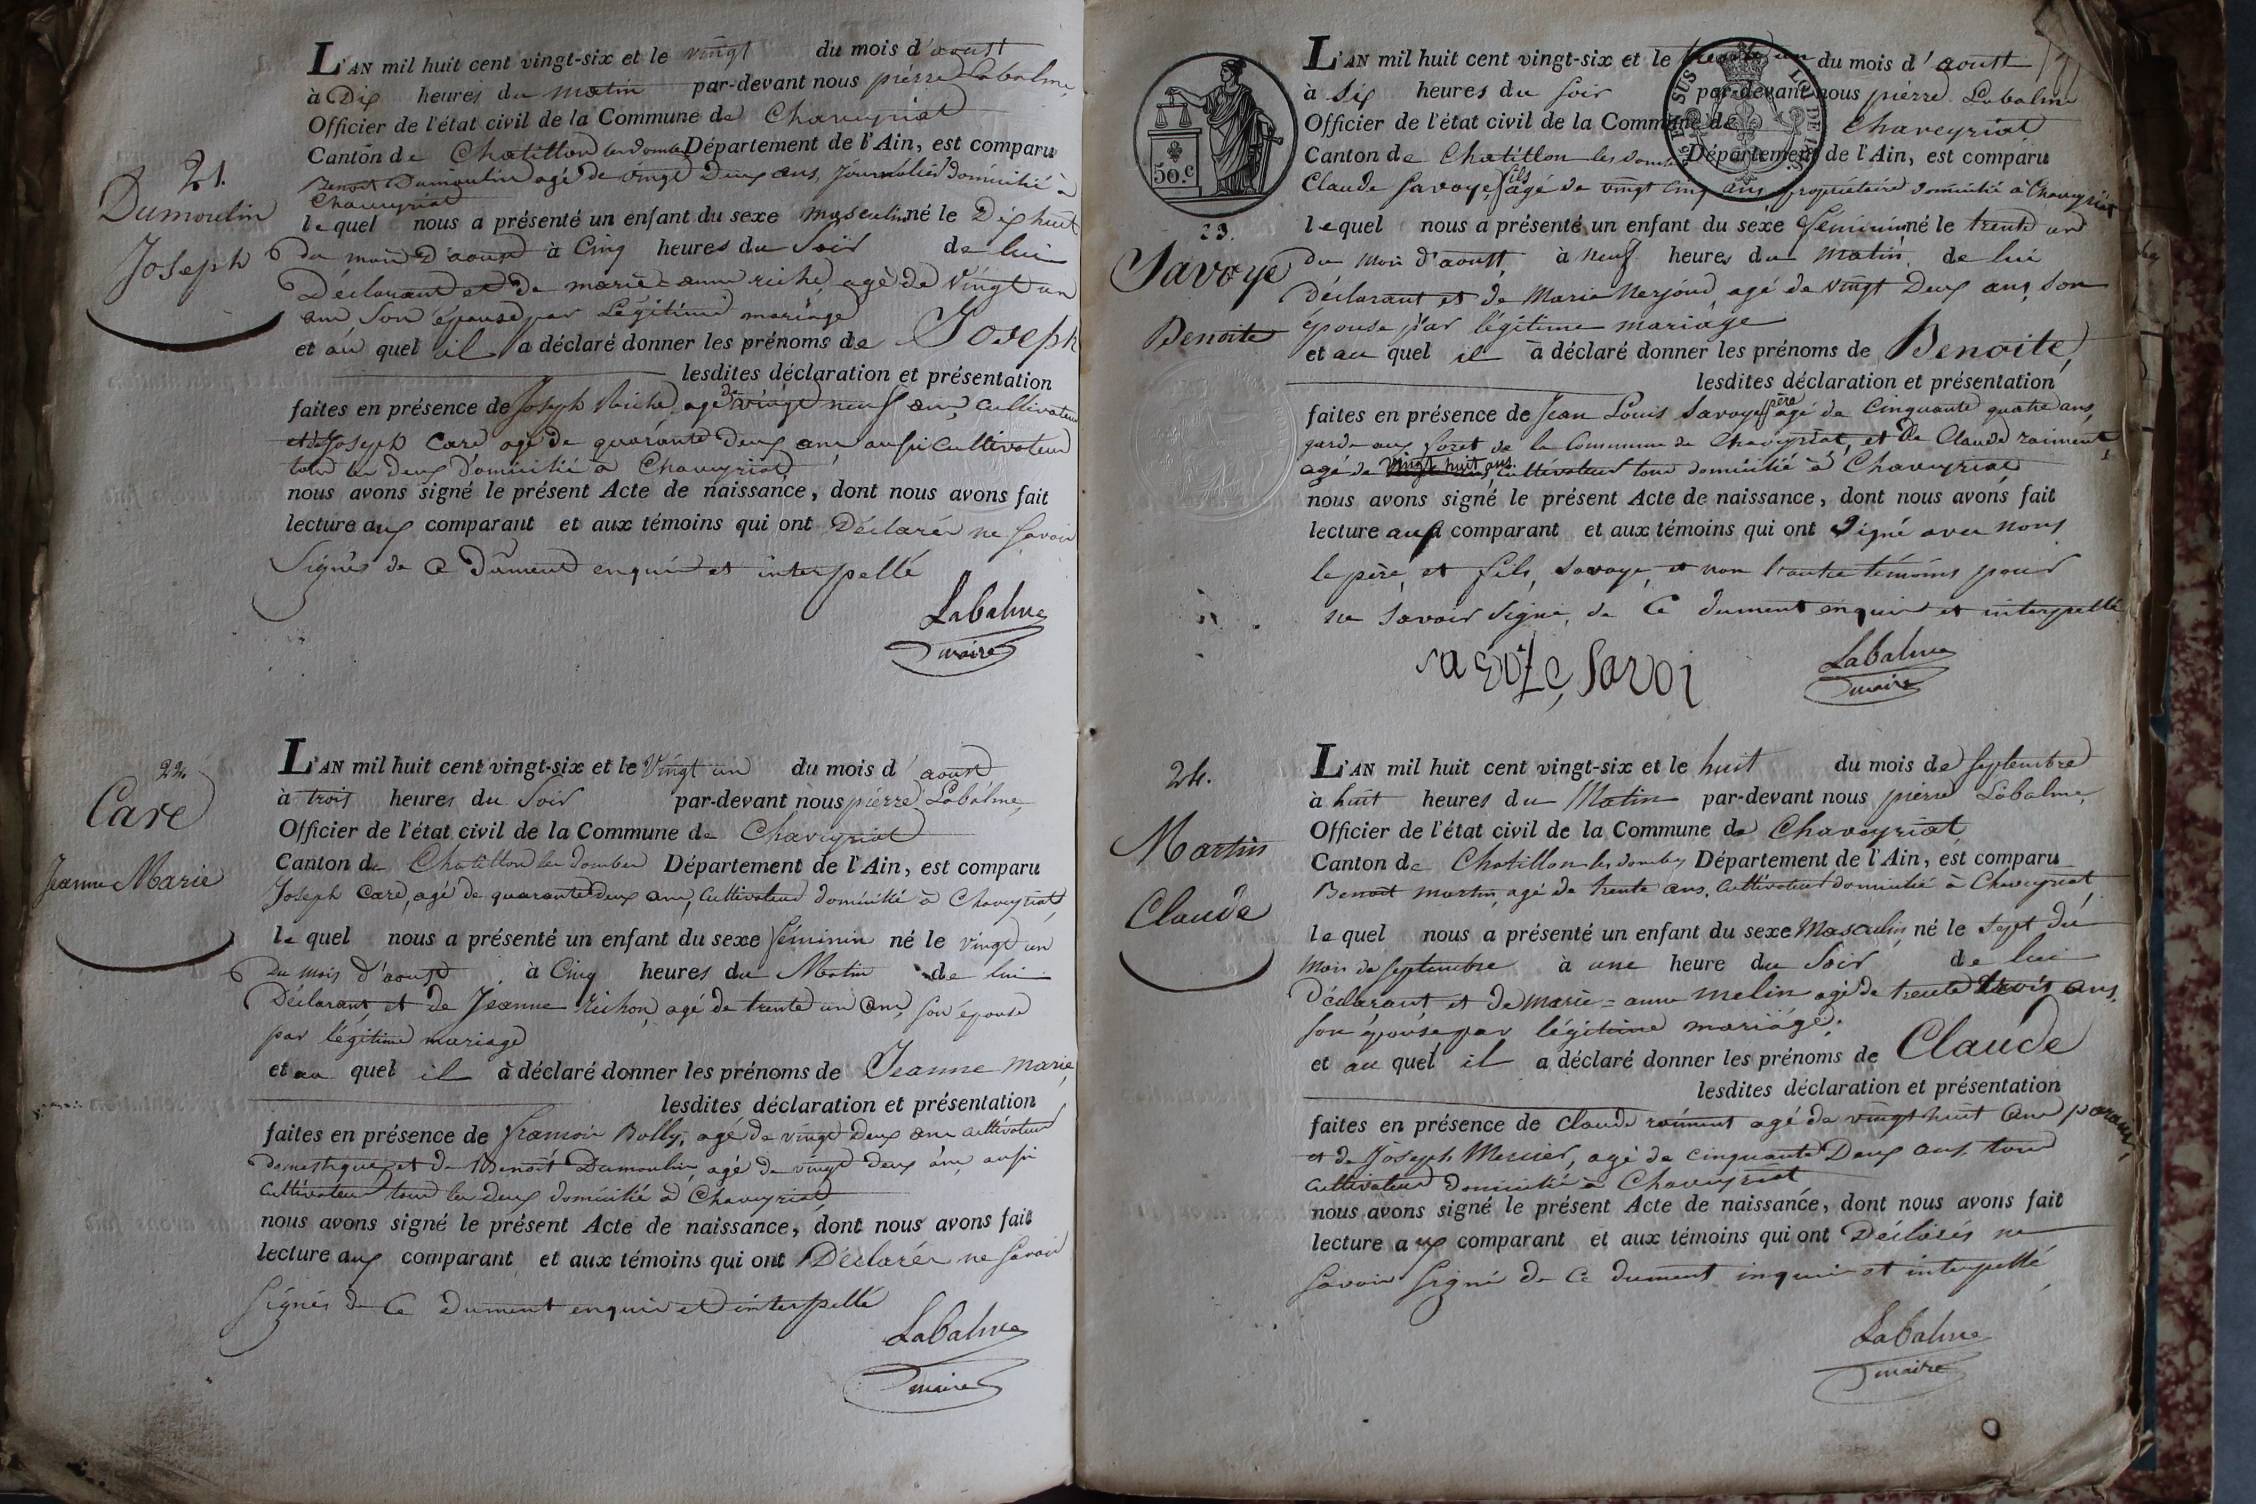 L'AN mil huit cent vingt-six et le vingt du mois d'aoust
à Dix heures du matin par-devant nous pierre Labalme,
Officier de l'état civil de la Commune de Chaveyriat
Canton de Chatillon les dombes Département de l'Ain, est comparu
21.
Benoit Dumoulin agé de vingt Deux ans, Journalier domicilié à
Chaveyriat
Dumoulin
le quel nous a présenté un enfant du sexe masculin né le Dix huit
Joseph
du mois d'aoust à Cinq heures du Soir de lui
Déclarant et de marie-anne riche, agé de vingt un
ans, Son épouse par Légitime mariage
et au quel il a déclaré donner les prénoms de Joseph
lesdites déclaration et présentation
faites en présence de Joseph Riche, agé de vingt neuf ans, cultivateur
et de Joseph Care agé de quarante deux ans, aussi cultivateur
tous les deux domicilié à Chaveyriat
nous avons signé le présent Acte de naissance, dont nous avons fait
lecture aux comparant et aux témoins qui ont Déclarér ne Savoir
Signés de Ce Dument enquir et interpellé
Labalme
maire
22.
Care
Jeanne Marie
L'AN mil huit cent vingt-six et le Vingt un du mois d'aoust
à trois heures du Soir par-devant nous pierre Labalme,
Officier de l'état civil de la Commune de Chaveyriat
Canton de Chatillon les dombes Département de l'Ain, est comparu
Joseph Care, agé de quarante deux ans, Cultivateur domicilié à Chaveyriat,
le quel nous a présenté un enfant du sexe féminin né le vingt un
Du mois d'aoust à Cinq heures du Matin de lui
Déclarant, et de Jeanne richon, agé de trente un ans, son épouse
par légitime mariage
et au quel il à déclaré donner les prénoms de Jeanne marie,
lesdites déclaration et présentation
faites en présence de françois Bolly, agé de vingt Deux ans cultivateur
Domestique, et de Benoit Dumoulin, agé de vingt deux ans, aussi
cultivateur tous les deux domicilié à Chaveyriat
nous avons signé le présent Acte de naissance, dont nous avons fait
lecture aux comparant et aux témoins qui ont Déclarér ne Savoir
Signés de Ce Dument enquir et interpellé
Labalme
maire
50.C
23.
Savoye
Benoite
L'AN mil huit cent vingt-six et le trente un du mois d'aoust
à six heures du soir par-devant nous pierre Labalme
Officier de l'état civil de la Commune de Chaveyriat
Canton de Chatillon les dombes Département de l'Ain, est comparu
Claude Savoye, fils agé de vingt cinq ans propriétaire domicilié à Chaveyriat
le quel nous a présenté un enfant du sexe féminin né le trente un
du Mois d'aoust, à neuf heures du matin de lui
déclarant et de Marie agé de vingt Deux ans, son
épouse par légitime mariage
et au quel il à déclaré donner les prénoms de Benoite,
lesdites déclaration et présentation
faites en présence de Jean Louis Savoye père agé de Cinquante quatre ans,
garde aux foret de la Commune de Chaveyriat, et de Claude raiment
agé de vingt huit ans. Cultivateur tous domicilié à Chaveyriat
nous avons signé le présent Acte de naissance, dont nous avons fait
lecture aux comparant et aux témoins qui ont Signé avec nous
le père, et fils, savoye, et non l'autre témoins pour
ne Savoir Signé, de Ce dument enquir et interpellé
Savoye, Savoi
Labalme
maire
24.
Martin
Claude
L'AN mil huit cent vingt-six et le huit du mois de Septembre
à huit heures du Matin par-devant nous pierre Labalme,
Officier de l'état civil de la Commune de Chaveyriat
Canton de Chatillon les dombes Département de l'Ain, est comparu
Benoit martin, agé de trente ans. cultivateur domicilié à Chaveyriat,
le quel nous a présenté un enfant du sexe Masculin né le Sept du
mois de Septembre à une heure du Soir de lui
Déclarant et de marie=anne melin agé de trente trois ans.
son épouse par légitime mariage.
et au quel il a déclaré donner les prénoms de Claude
lesdites déclaration et présentation
faites en présence de Claude raiment agé de vingt huit ans
et de Joseph Mercier, agé de cinquante Deux ans tous
cultivateur domicilié à Chaveyriat
nous avons signé le présent Acte de naissance, dont nous avons fait
lecture aux comparant et aux témoins qui ont Déclarés ne
Savoir Signé de Ce dument inquir et interpellé
Labalme
maire